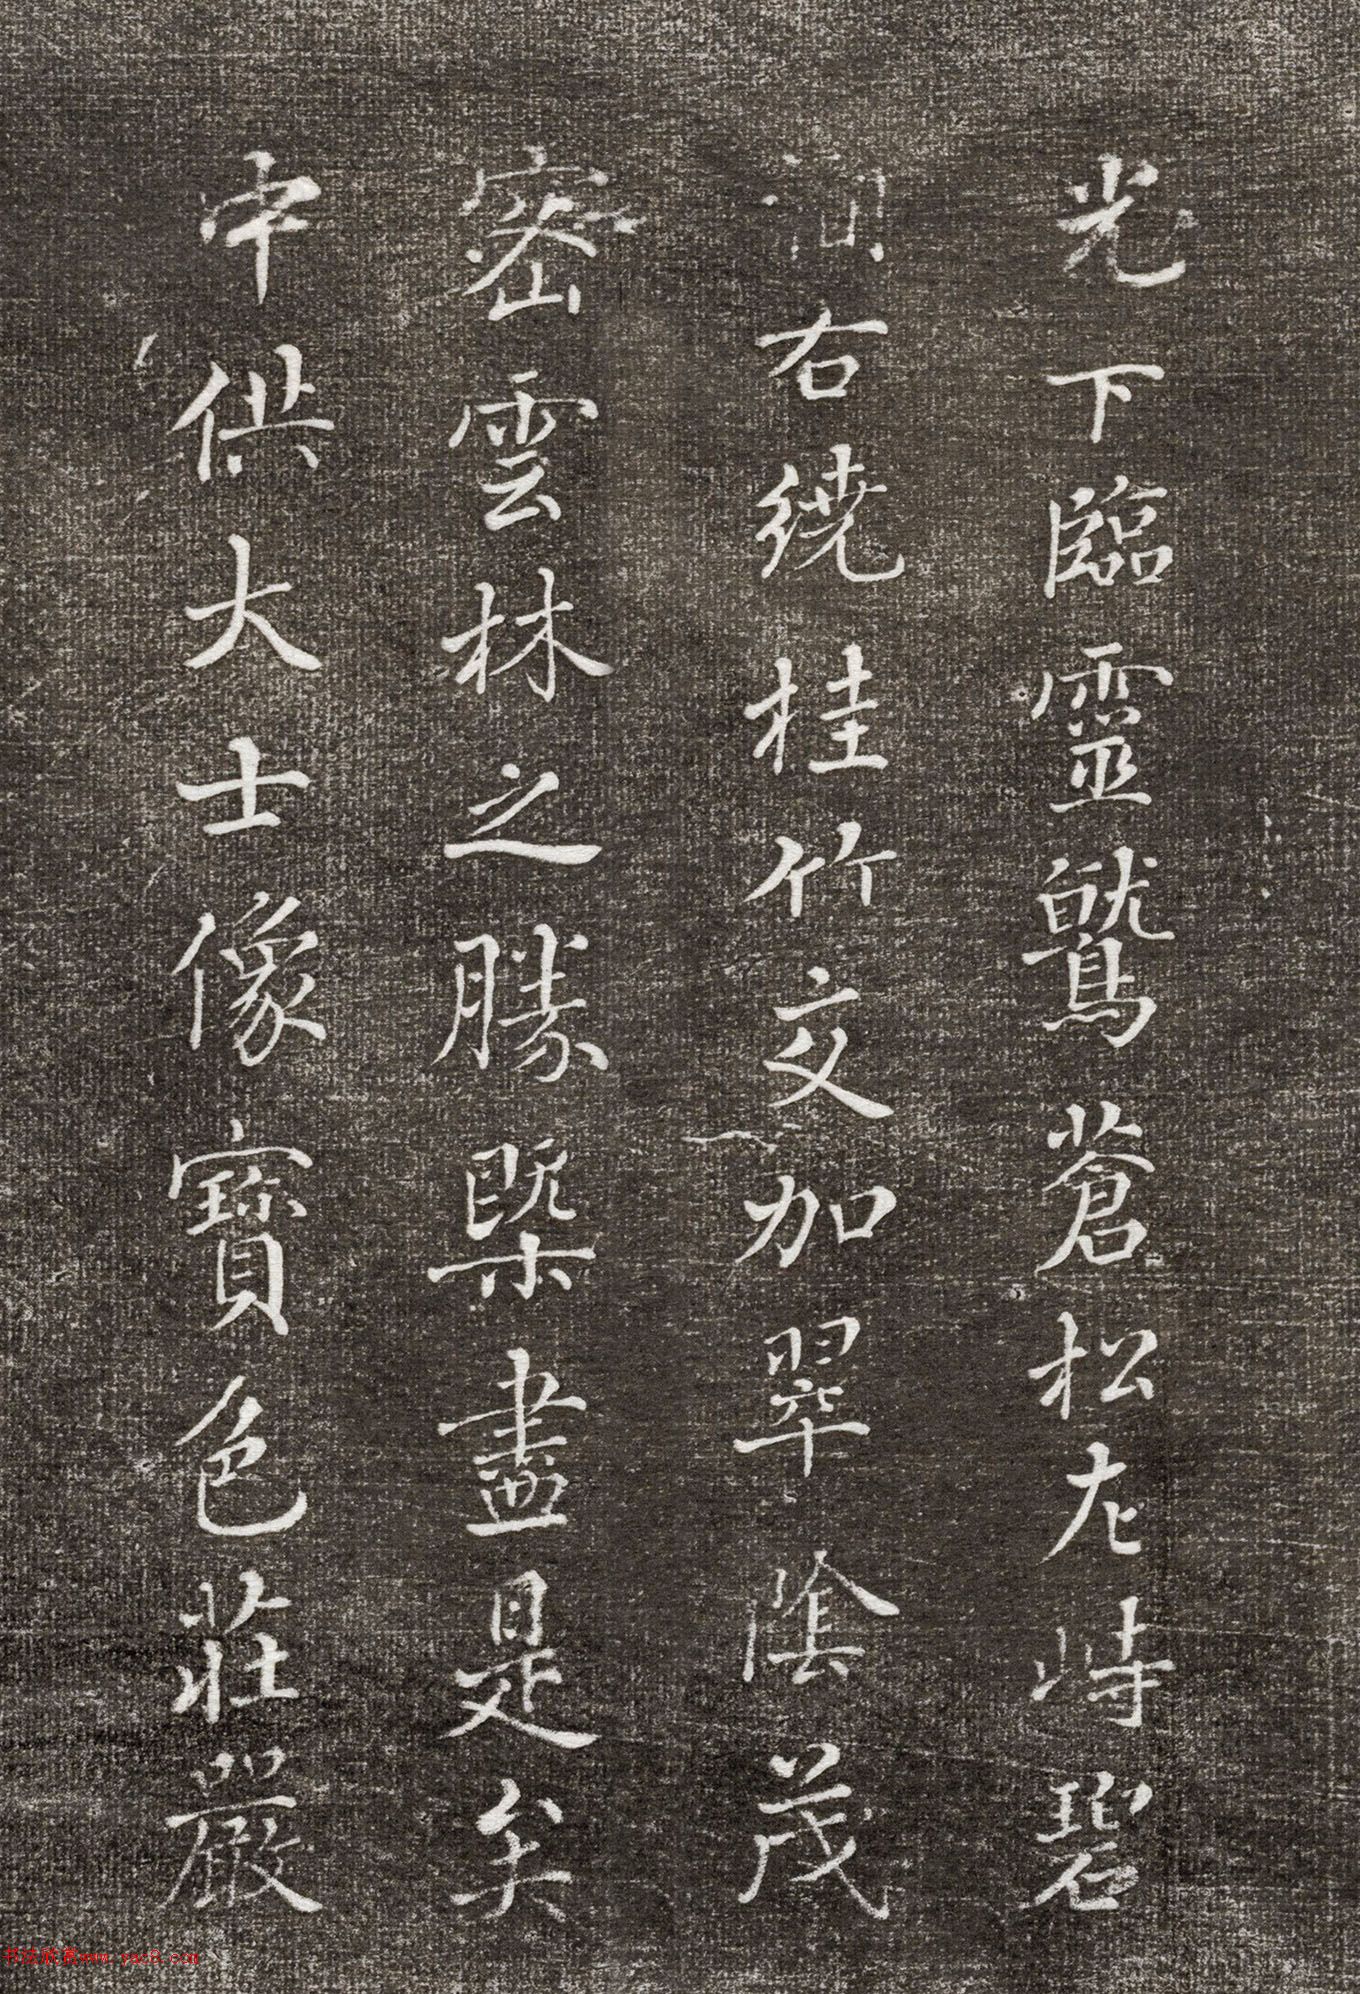 光下臨靈鷲蒼松左峙碧
澗右繞桂竹交加翠陰茂
密雲林之勝槩盡是矣
中供大士像寶色莊嚴
书法欣赏www.yac8.com